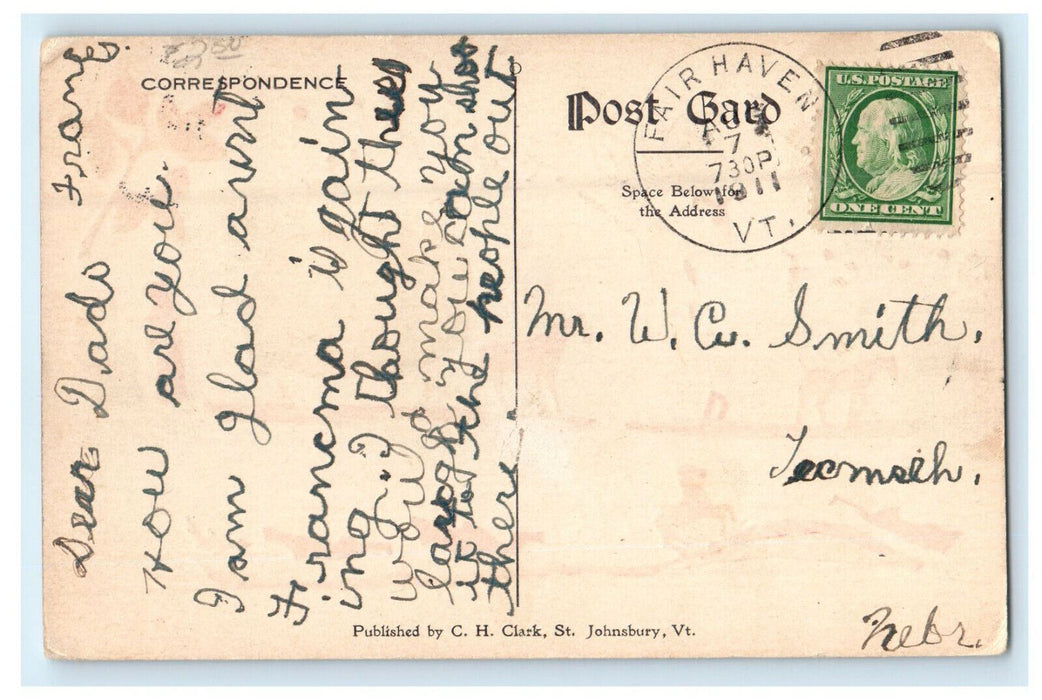 $2.50
CORRESPONDENCE
Dear Dado
How are you.
I am glad aunt
Francma is gain
ing.. I thought this
would make you
laugh you can show
it to the people out
there
Frang
Post Card
Space Below for
the Address
FAIR HAVEN
AUG
7
730P
1911
VT.
U.S. POSTAGE
ONE CENT
Mr. W. W. Smith.
Tecmseh.
Nebr.
Published by C. H. Clark, St. Johnsbury, Vt.